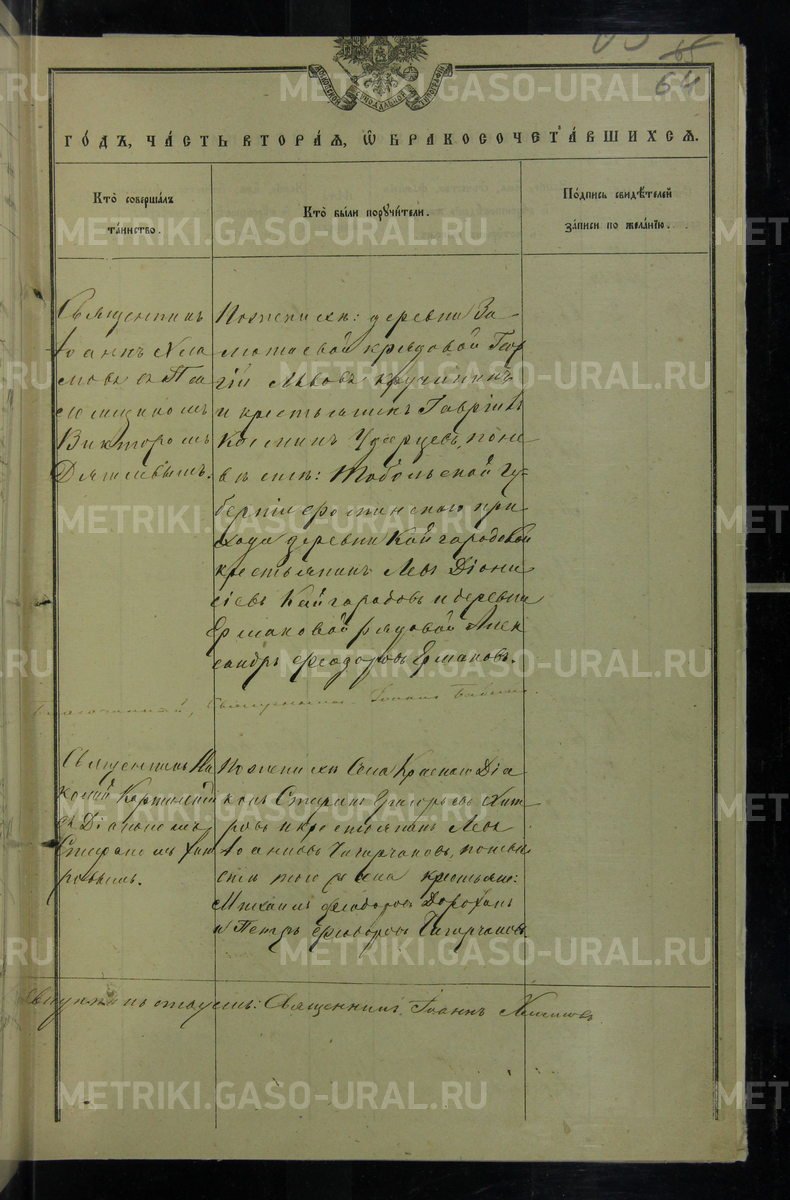 65
64
МОСКОВСКОЙ СѴНОДАЛЬНОЙ ТИПОГРАФІИ
ГО́ДЪ, ЧА́СТЬ ВТОРА́Ѧ, Ѽ БРАКОСОЧЕТА́ВШИХСѦ.
Кто̀ соверша́лъ
та́инство.
Кто̀ бы́ли порꙋчи́тели.
По́дпись свидѣ́телей
за́писи по жела́нїю.
Священникъ
Іоаннъ Хла
мовъ съ Пса
ломщикомъ
Викторомъ
Дягилевымъ.
По женихѣ: деревни За
мотаевой крядовой Геор
гій Львовъ Кручининъ
и крестьянинъ Гавріилъ
Космин Ударцевъ, по не
вѣстѣ: Тобольской Гу
берніи при
хода деревни Кайгородовой
крестьянинъ Левъ Діони
сіевъ Кайгородовъ и деревни
Ермаковой рядовой Алек
сандръ Ѳеодоровъ Ермаковъ.
Священникъ Іоаннъ
Священникъ Ни
колай
съ Діакономъ
Стефаномъ Хит
ровымъ.
По женихѣ Села Краснаго Діа
конъ Стефанъ Григорьевъ Хит
ровъ и крестьянинъ Левъ
Іоанновъ Чигирчаковъ, по невѣ
стѣ того Села крестьяне:
Михаилъ Ѳеодоровъ Дорохинъ
и Петръ Ѳеодоровъ Чигирчаковъ.
Священникъ Іоаннъ
METRIKI.GASO-URAL.RU